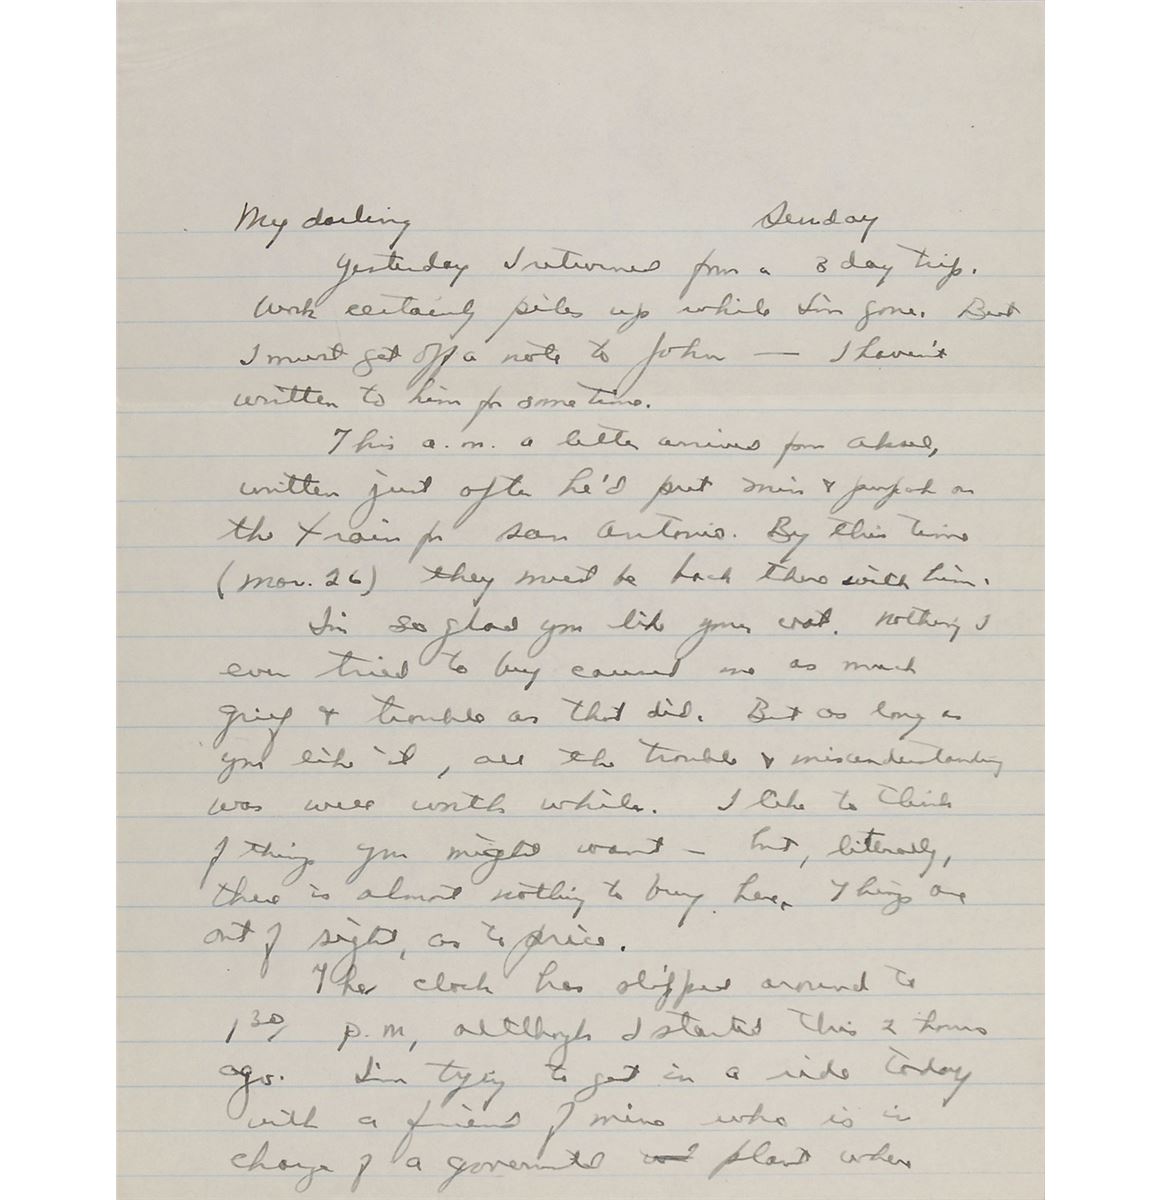 My darling Sunday
Yesterday I returned from a 3 day trip.
Work certainly piles up while I'm gone. But
I must get off a note to John — I haven't
written to him for some time.
This a.m. a letter arrived from Aksel,
written just after he'd put & on
the train for San Antonio. By this time
(Nov. 26) they must be back there with him.
I'm so glad you like your coat. Nothing I
ever tried to buy caused me as much
grief & trouble as that did. But as long as
you like it, all the trouble & misunderstanding
was well worth while. I like to think
of things you might want – but, literally,
there is almost nothing to buy here. Things are
out of sight, as to price.
The clock has slipped around to
1 30/ p.m, although I started this 2 hours
ago. I'm trying to get in a ride today
with a friend of mine who is in
charge of a government plant where